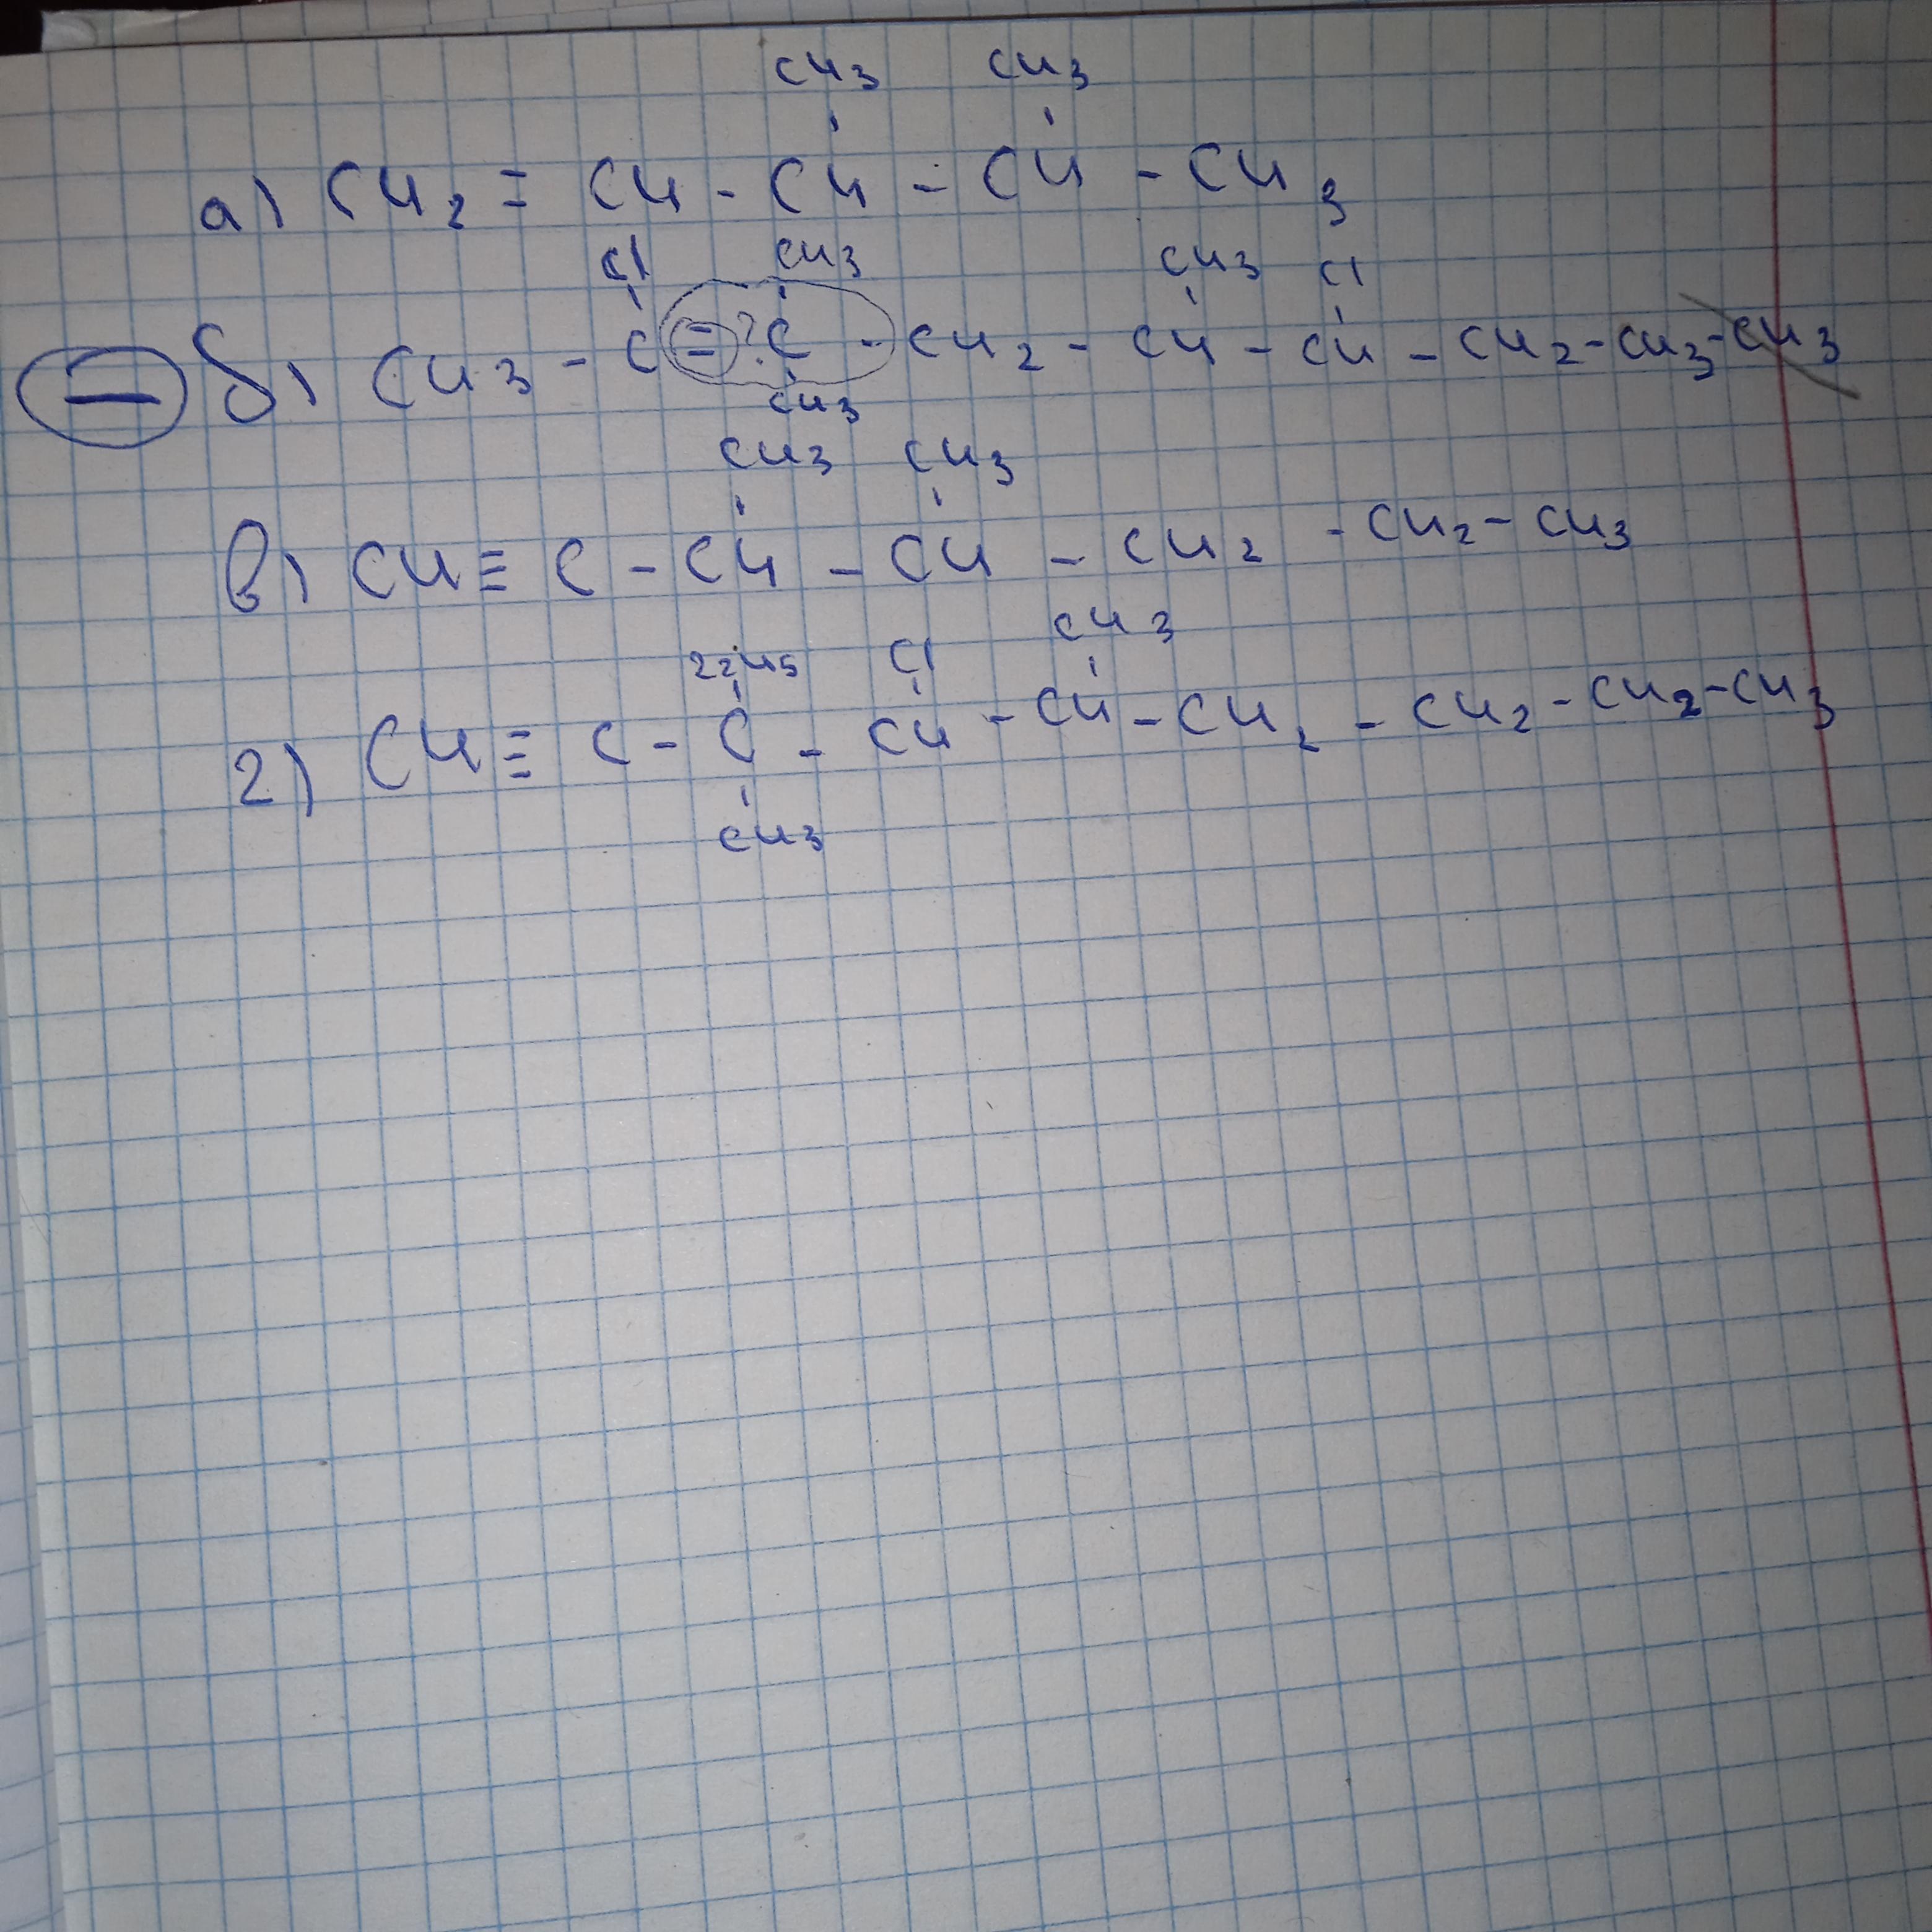 CH3 CH3
а) CH2 = CH - CH - CH - CH3
Cl CH3 CH3 Cl
б) CH3 - C = ? C - CH2 - CH - CH - CH2 - CH3 - CH3
CH3
CH3 CH3
в) CH ≡ C - CH - CH - CH2 - CH2 - CH3
Cl CH3
г) CH ≡ C - C - CH - CH - CH2 - CH2 - CH2 - CH3
CH3